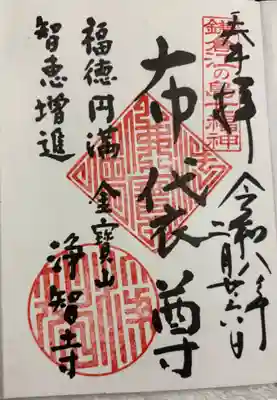 奉拝
鎌倉江の島七福神
令和八年二月廿六日
布袋尊
福徳円満
智恵増進
金寶山
浄智寺